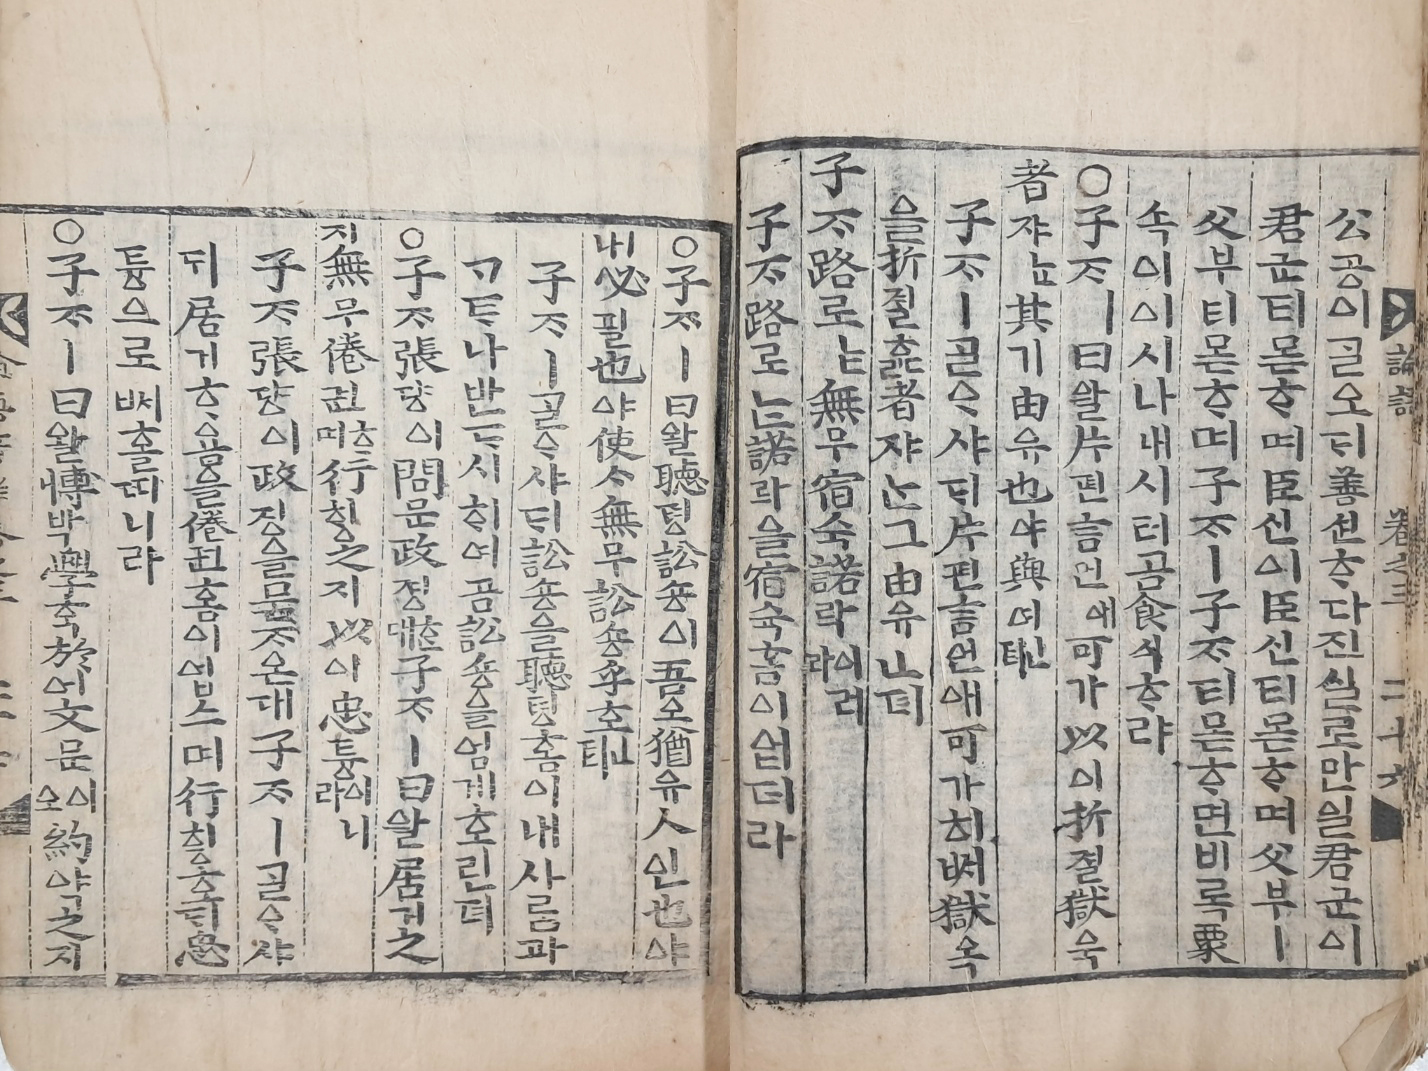 論語 卷之三 二十六
公공이ᄀᆞᆯ오ᄃᆡ善션ᄒᆞ다진실로만일君군이
君군티몯ᄒᆞ며臣신이臣신티몯ᄒᆞ며父부ㅣ
父부티몯ᄒᆞ며子ᄌᆞㅣ子ᄌᆞ티몯ᄒᆞ면비록粟
속이이시나내시터곰食식ᄒᆞ랴
○子ᄌᆞㅣ曰왈片편言언애可가以이折졀獄옥
者쟈ᄂᆞᆫ其기由유也야與여ㅣㄴ뎌
子ᄌᆞㅣᄀᆞᆯᄋᆞ샤ᄃᆡ片편言언애可가히ᄡᅥ獄옥
을折졀ᄒᆞᆯ者쟈ᄂᆞᆫ그由유ㅣㄴ뎌
子ᄌᆞ路로ᄂᆞᆫ無무宿숙諾락이러라
子ᄌᆞ路로ᄂᆞᆫ諾락을宿슉홈이업더라
○子ᄌᆞㅣ曰왈聽텽訟숑이吾오猶유人인也야
내必필也야使ᄉᆞ無무訟숑乎호ㅣㄴ뎌
子ᄌᆞㅣᄀᆞᆯᄋᆞ샤ᄃᆡ訟숑을聽텽홈이내사ᄅᆞᆷ과
ᄀᆞᄐᆞ나반ᄃᆞ시ᄒᆡ여곰訟숑을업게호린뎌
○子ᄌᆞ張댱이問문政졍ᄒᆞᆫ대子ᄌᆞㅣ曰왈居거之
지無무倦권ᄒᆞ며行ᄒᆡᆼ之지以이忠튱이니라
子ᄌᆞ張댱이政졍을묻ᄌᆞ온대子ᄌᆞㅣᄀᆞᆯᄋᆞ샤
ᄃᆡ居거ᄒᆞ욤을倦권홈이업스며行ᄒᆡᆼ호ᄃᆡ忠
튱으로ᄡᅥ홀ᄯᅵ니라
○子ᄌᆞㅣ曰왈博박學ᄒᆞᆨ於어文문이오約약之지